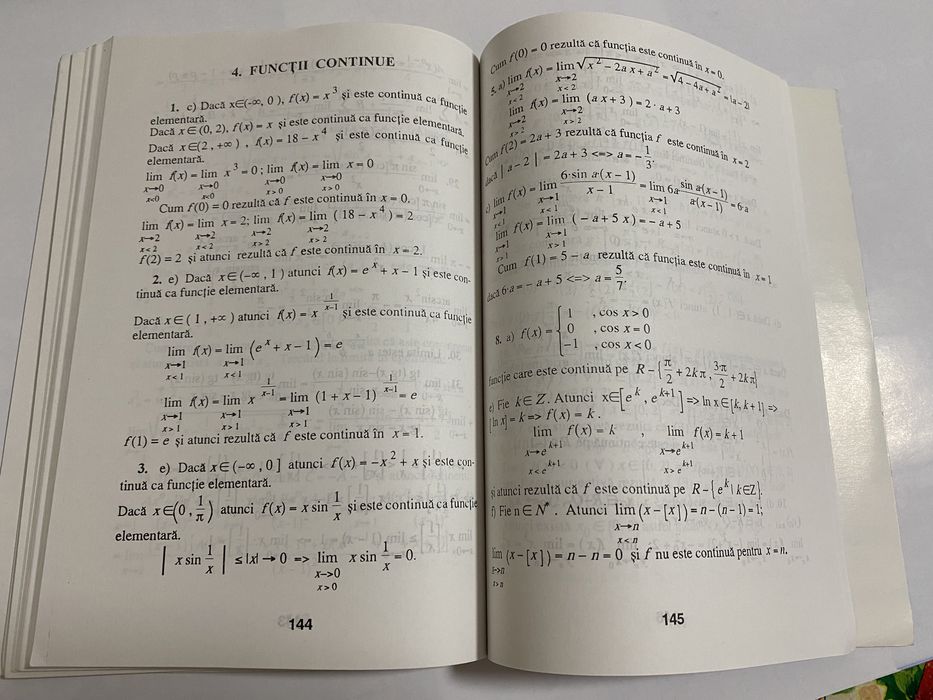 4. FUNCŢII CONTINUE
1. c) Dacă x∈(-∞, 0), f(x) = x³ şi este continuă ca funcţie
elementară.
Dacă x∈(0, 2), f(x) = x şi este continuă ca funcţie elementară.
Dacă x∈(2, +∞), f(x) = 18 − x⁴ şi este continuă ca funcţie
elementară.
lim f(x) = lim x³ = 0 ; lim f(x) = lim x = 0
x→0 x→0 x→0 x→0
x<0 x<0 x>0 x>0
Cum f(0) = 0 rezultă că f este continuă în x = 0.
lim f(x) = lim x = 2; lim f(x) = lim (18 − x⁴) = 2
x→2 x→2 x→2 x→2
x<2 x<2 x>2 x>2
f(2) = 2 şi atunci rezultă că f este continuă în x = 2.
2. e) Dacă x∈(−∞, 1) atunci f(x) = eˣ + x − 1 şi este con-
tinuă ca funcţie elementară.
Dacă x∈(1, +∞) atunci f(x) = x^(1/(x−1)) şi este continuă ca funcţie
elementară.
lim f(x) = lim (eˣ + x − 1) = e
x→1 x→1
x<1 x<1
lim f(x) = lim x^(1/(x−1)) = lim (1 + x − 1)^(1/(x−1)) = e
x→1 x→1 x→1
x>1 x>1 x>1
f(1) = e şi atunci rezultă că f este continuă în x = 1.
3. e) Dacă x∈(−∞, 0] atunci f(x) = −x² + x şi este con-
tinuă ca funcţie elementară.
Dacă x∈(0, 1/π) atunci f(x) = x sin 1/x şi este continuă ca funcţie
elementară.
| x sin 1/x | ≤ |x| → 0 => lim x sin 1/x = 0.
x→0
x>0
144
Cum f(0) = 0 rezultă că funcţia este continuă în x = 0.
5. a) lim f(x) = lim √(x² − 2ax + a²) = √(4 − 4a + a²) = |a − 2|
x→2 x→2
x<2 x<2
lim f(x) = lim (ax + 3) = 2·a + 3
x→2 x→2
x>2 x>2
Cum f(2) = 2a + 3 rezultă că funcţia f este continuă în x = 2
dacă |a − 2| = 2a + 3 <=> a = −1/3.
c) lim f(x) = lim 6·sin a·(x−1)/(x − 1) = lim 6a sin a·(x−1)/(a·(x−1)) = 6·a
x→1 x→1 x→1
x<1 x<1 x<1
lim f(x) = lim (−a + 5x) = −a + 5
x→1 x→1
x>1 x>1
Cum f(1) = 5 − a rezultă că funcţia este continuă în x = 1
dacă 6·a = −a + 5 <=> a = 5/7.
8. a) f(x) = { 1 , cos x > 0
0 , cos x = 0
−1 , cos x < 0
funcţie care este continuă pe R − {π/2 + 2kπ, 3π/2 + 2kπ}
e) Fie k∈Z. Atunci x∈[eᵏ, eᵏ⁺¹] => ln x∈[k, k+1] =>
[ln x] = k => f(x) = k.
lim f(x) = k , lim f(x) = k + 1
x→eᵏ⁺¹ x→eᵏ⁺¹
x<eᵏ⁺¹ x>eᵏ⁺¹
şi atunci rezultă că f este continuă pe R − {eᵏ | k∈Z}.
f) Fie n∈N*. Atunci lim (x − [x]) = n − (n−1) = 1;
x→n
x<n
lim (x − [x]) = n − n = 0 şi f nu este continuă pentru x = n.
x→n
x>n
145